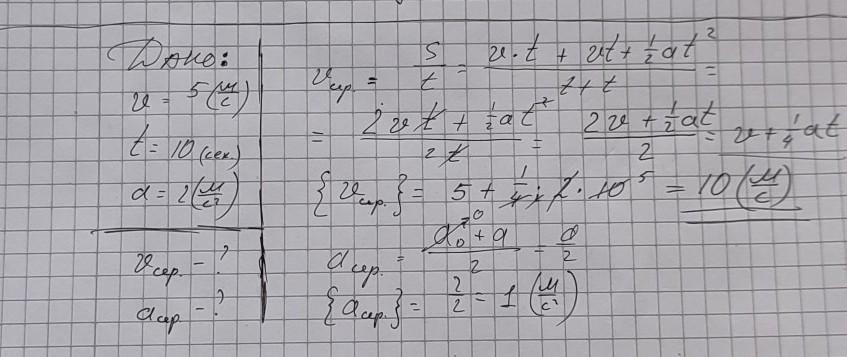 Дано:
v = 5 (м/с)
t = 10 (сек.)
a = 2 (м/с²)
v ср. - ?
a ср. - ?
v ср. = S/t = (v·t + vt + ½at²)/(t+t) =
= (2vt + ½at²)/2t = (2v + ½at)/2 = v + ¼at
{v ср.} = 5 + ¼ · 2 · 10 5 = 10 (м/с)
a ср. = (a₀ 0 + a)/2 = a/2
{a ср.} = 2/2 = 1 (м/с²)